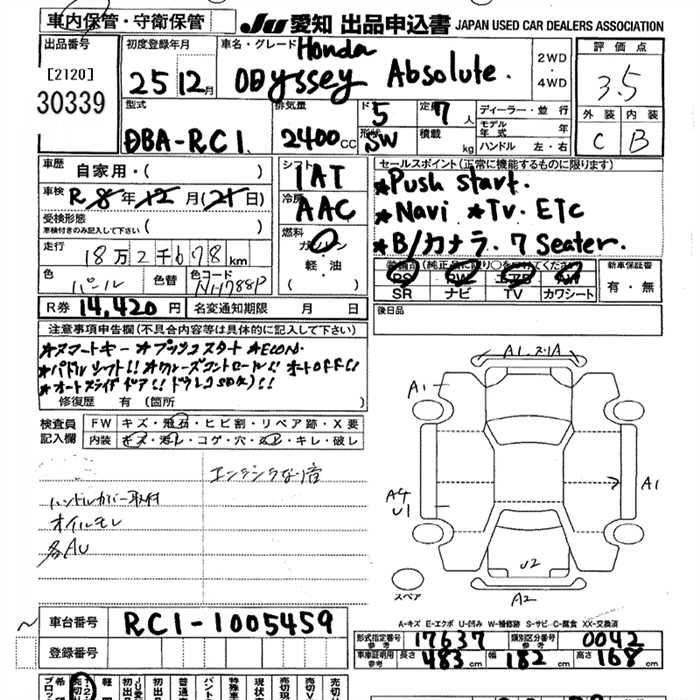 車内保管・守衛保管
JU 愛知 出品申込書 JAPAN USED CAR DEALERS ASSOCIATION
出品番号
[2120]
30339
初度登録年月
25 12月
車名・グレード
Honda
Odyssey Absolute.
2WD
・
4WD
評価点
3.5
外装 内装
C B
型式
DBA-RC1.
排気量
2400 CC
ド 5
形状 SW
定 7 人
積載 kg
ディーラー・並行
モデル年式 年
ハンドル 左・右
車歴
自家用・( )
車検
R 8年 12月(21日)
受検形態
車検付きのみ記入して下さい ( )
走行
18万2千678 km
色
パール
色替
色コード
NH788P
シフト
IAT
冷房
AAC
燃料
ガソリン
・
軽・油
セールスポイント(正常に機能するものに限ります)
★Push start.
★Navi ★Tv. ETC
★B/カメラ. 7 Seater.
PS PW AW
SR ナビ TV カワシート
新車保証書
有・無
R券 14,420円
名変通知期限 月 日
後日品
注意事項申告欄(不具合内容等は具体的に記入して下さい)
★スマートキー ★プッシュスタート ★ECON.
★パドルシフト!! ★クルーズコントロール!!
★オートスライドドア!!
修復歴 有 (箇所 )
検査員
記入欄
FW キズ・飛石・ヒビ割・リペア跡・X要
内装 キズ・汚レ・コゲ・穴・スレ・キレ・破レ
ハンドルカバー取付
オイルモレ
各AU
A1
A1
A4
U1
U2
A2
スペア
A-キズ E-エクボ U-凹み W-補修跡 S-サビ C-腐食 XX-交換済
車台番号 RC1-1005459
登録番号
形式指定番号 参考 17637
類別区分番号 参考 0042
車庫証明用 参考 長さ 483 cm 幅 182 cm 高さ 168 cm